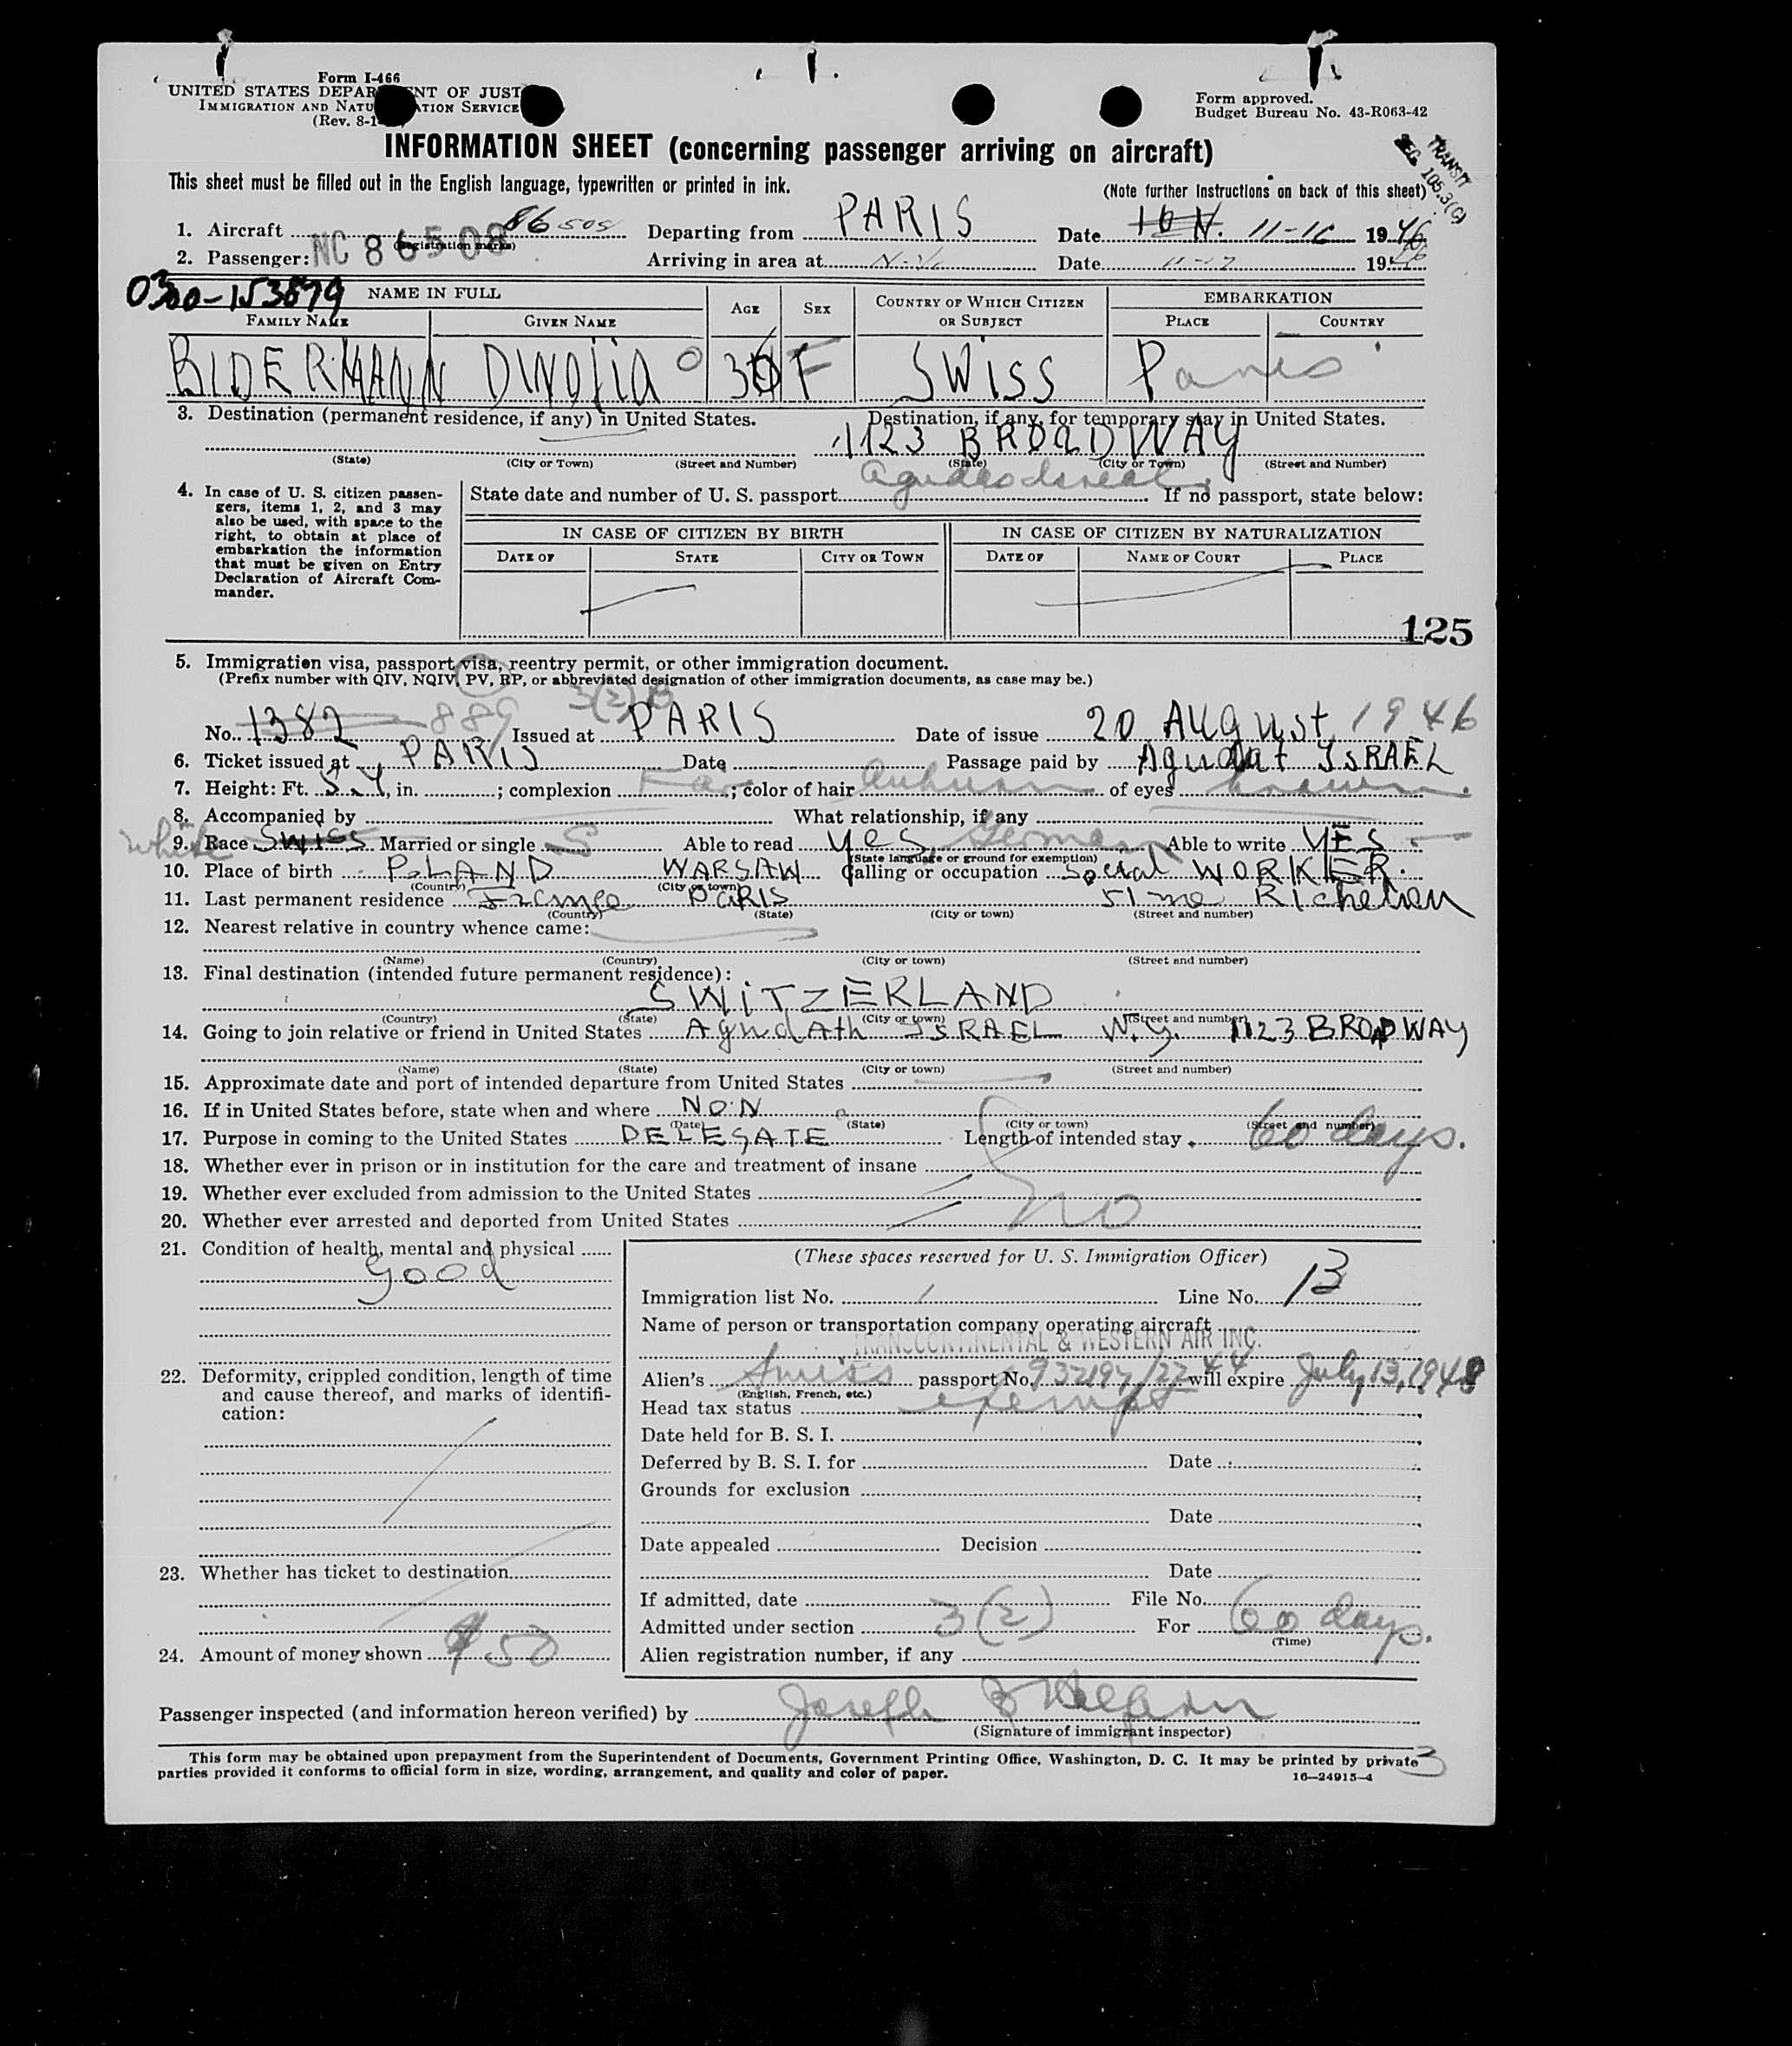 Form I-466
UNITED STATES DEPAR NT OF JUST
IMMIGRATION AND NATU TION SERVICE
(Rev. 8-1
Form approved.
Budget Bureau No. 43-R063-42
TRANSIT
REG. 105.3(C)
INFORMATION SHEET (concerning passenger arriving on aircraft)
This sheet must be filled out in the English language, typewritten or printed in ink.
(Note further instructions on back of this sheet)
1. Aircraft 86508 Departing from PARIS Date 16 N. 11-16 1946
(Registration marks)
NC 86508
2. Passenger: Arriving in area at N.Y. Date 11-17 1946
0300-153879
NAME IN FULL AGE SEX COUNTRY OF WHICH CITIZEN OR SUBJECT EMBARKATION
FAMILY NAME GIVEN NAME PLACE COUNTRY
BIDERMANN DWOJIA 36 F SWiss Paris
3. Destination (permanent residence, if any) in United States. Destination, if any, for temporary stay in United States.
1123 BROADWAY
(State) (City or Town) (Street and Number) (State) (City or Town) (Street and Number)
4. In case of U. S. citizen passen-
gers, items 1, 2, and 3 may
also be used, with space to the
right, to obtain at place of
embarkation the information
that must be given on Entry
Declaration of Aircraft Com-
mander.
State date and number of U. S. passport If no passport, state below:
IN CASE OF CITIZEN BY BIRTH IN CASE OF CITIZEN BY NATURALIZATION
DATE OF STATE CITY OR TOWN DATE OF NAME OF COURT PLACE
125
5. Immigration visa, passport visa, reentry permit, or other immigration document.
(Prefix number with QIV, NQIV, PV, RP, or abbreviated designation of other immigration documents, as case may be.)
3(2) B
No. 1382 889 Issued at PARIS Date of issue 20 AUgust, 1946
6. Ticket issued at PARIS Date Passage paid by Agudat ISRAEL
7. Height: Ft. 5.4, in. ; complexion Fair ; color of hair Auburn of eyes brown.
8. Accompanied by What relationship, if any
white
9. Race SWiSS Married or single S Able to read yes, German Able to write YES
(State language or ground for exemption)
10. Place of birth POLAND WARSAW Calling or occupation Social WORKER.
(Country) (City or town)
11. Last permanent residence France PARIS 51 rue Richelieu
(Country) (State) (City or town) (Street and number)
12. Nearest relative in country whence came:
(Name) (Country) (City or town) (Street and number)
13. Final destination (intended future permanent residence):
SWiTZERLAND
(Country) (State) (City or town) (Street and number)
14. Going to join relative or friend in United States AgudAth ISRAEL N.y. 1123 BROADWAY
(Name) (State) (City or town) (Street and number)
15. Approximate date and port of intended departure from United States
16. If in United States before, state when and where NON
(Date) (State) (City or town) (Street and number)
17. Purpose in coming to the United States DELEGATE Length of intended stay 60 days.
18. Whether ever in prison or in institution for the care and treatment of insane
19. Whether ever excluded from admission to the United States
no
20. Whether ever arrested and deported from United States
21. Condition of health, mental and physical
good
22. Deformity, crippled condition, length of time
and cause thereof, and marks of identifi-
cation:
23. Whether has ticket to destination
24. Amount of money shown $50
(These spaces reserved for U. S. Immigration Officer)
Immigration list No. 1 Line No. 13
Name of person or transportation company operating aircraft
TRANSCONTINENTAL & WESTERN AIR INC.
Alien's Swiss passport No. will expire July 13, 1948
(English, French, etc.)
Head tax status exempt
Date held for B. S. I.
Deferred by B. S. I. for Date
Grounds for exclusion
Date
Date appealed Decision
Date
If admitted, date File No.
Admitted under section 3(2) For 60 days.
(Time)
Alien registration number, if any
Passenger inspected (and information hereon verified) by Joseph
(Signature of immigrant inspector)
This form may be obtained upon prepayment from the Superintendent of Documents, Government Printing Office, Washington, D. C. It may be printed by private
parties provided it conforms to official form in size, wording, arrangement, and quality and color of paper.
16—24915-4
3